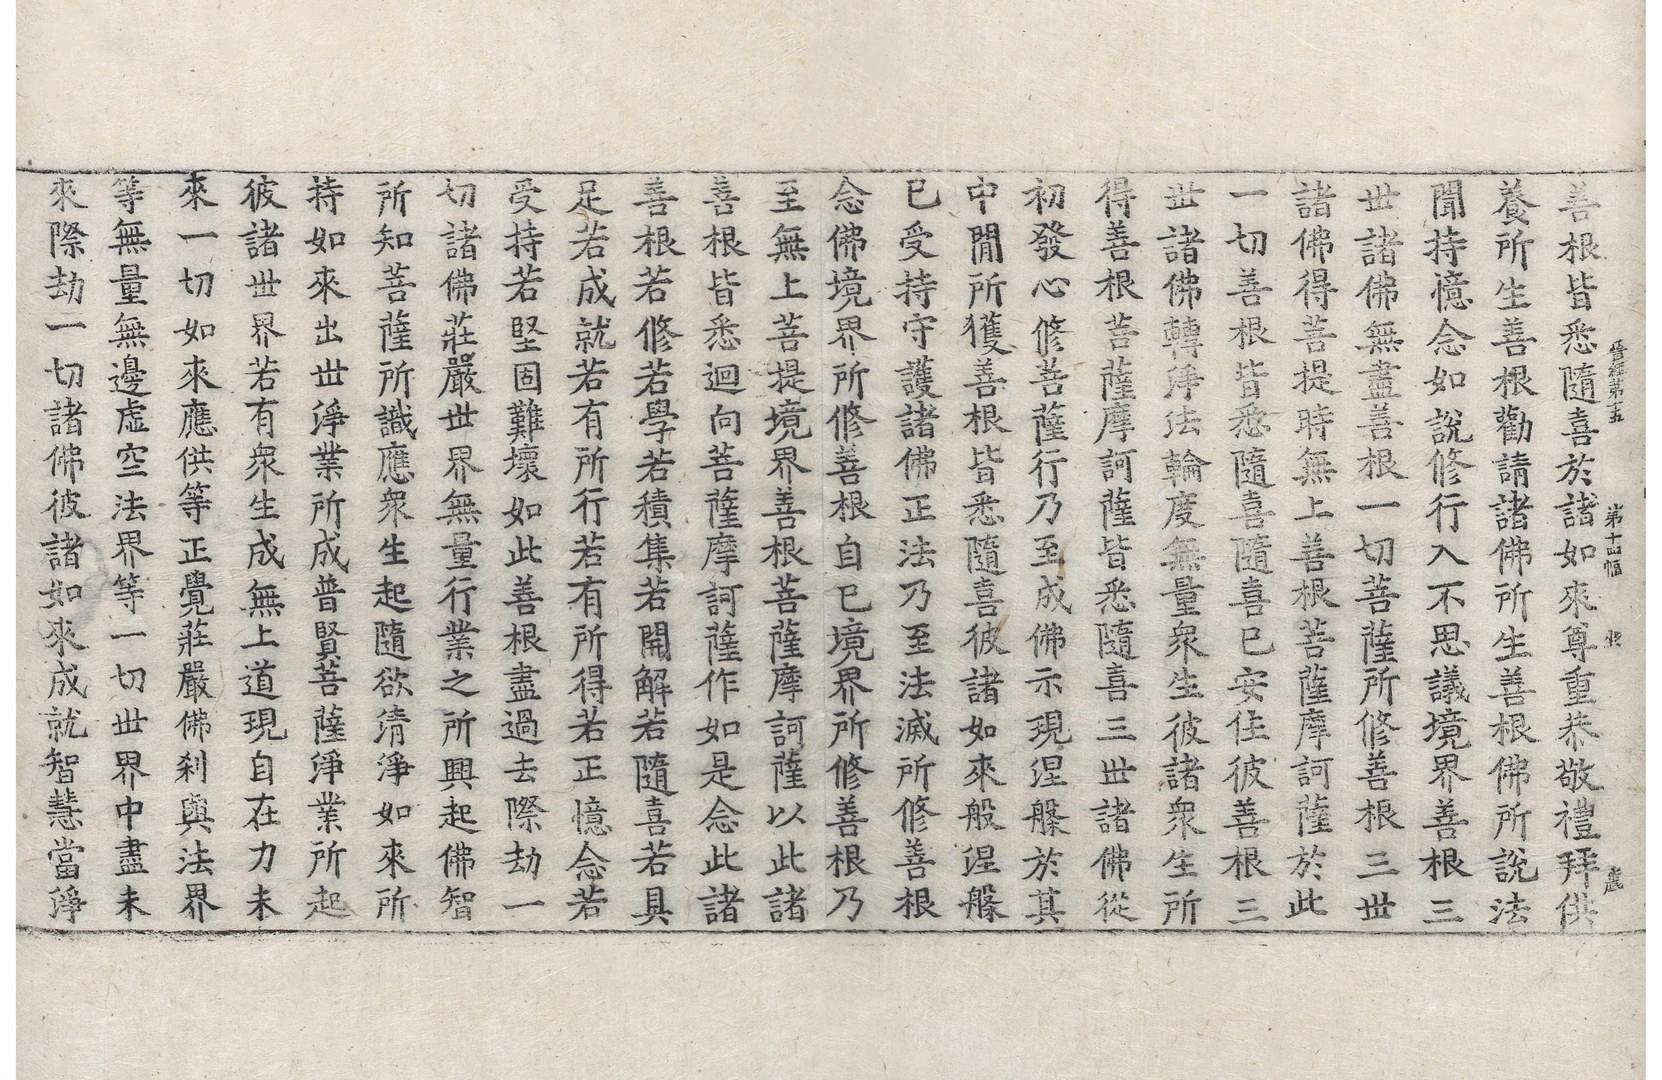 晉經第十五 第十四幅 典 鹿
善根皆悉隨喜於諸如來尊重恭敬禮拜供
養所生善根勸請諸佛所生善根佛所說法
聞持憶念如說修行入不思議境界善根三
世諸佛無盡善根一切菩薩所修善根三世
諸佛得菩提時無上善根菩薩摩訶薩於此
一切善根皆悉隨喜隨喜已安住彼善根三
世諸佛轉淨法輪度無量衆生彼諸衆生所
得善根菩薩摩訶薩皆悉隨喜三世諸佛從
初發心修菩薩行乃至成佛示現涅槃於其
中間所獲善根皆悉隨喜彼諸如來般涅槃
已受持守護諸佛正法乃至法滅所修善根
念佛境界所修善根自已境界所修善根乃
至無上菩提境界善根菩薩摩訶薩以此諸
善根皆悉迴向菩薩摩訶薩作如是念此諸
善根若修若學若積集若開解若隨喜若具
足若成就若有所行若有所得若正憶念若
受持若堅固難壞如此善根盡過去際劫一
切諸佛莊嚴世界無量行業之所興起佛智
所知菩薩所識應衆生起隨欲清淨如來所
持如來出世淨業所成普賢菩薩淨業所起
彼諸世界若有衆生成無上道現自在力未
來一切如來應供等正覺莊嚴佛刹與法界
等無量無邊虛空法界等一切世界中盡未
來際劫一切諸佛彼諸如來成就智慧當淨